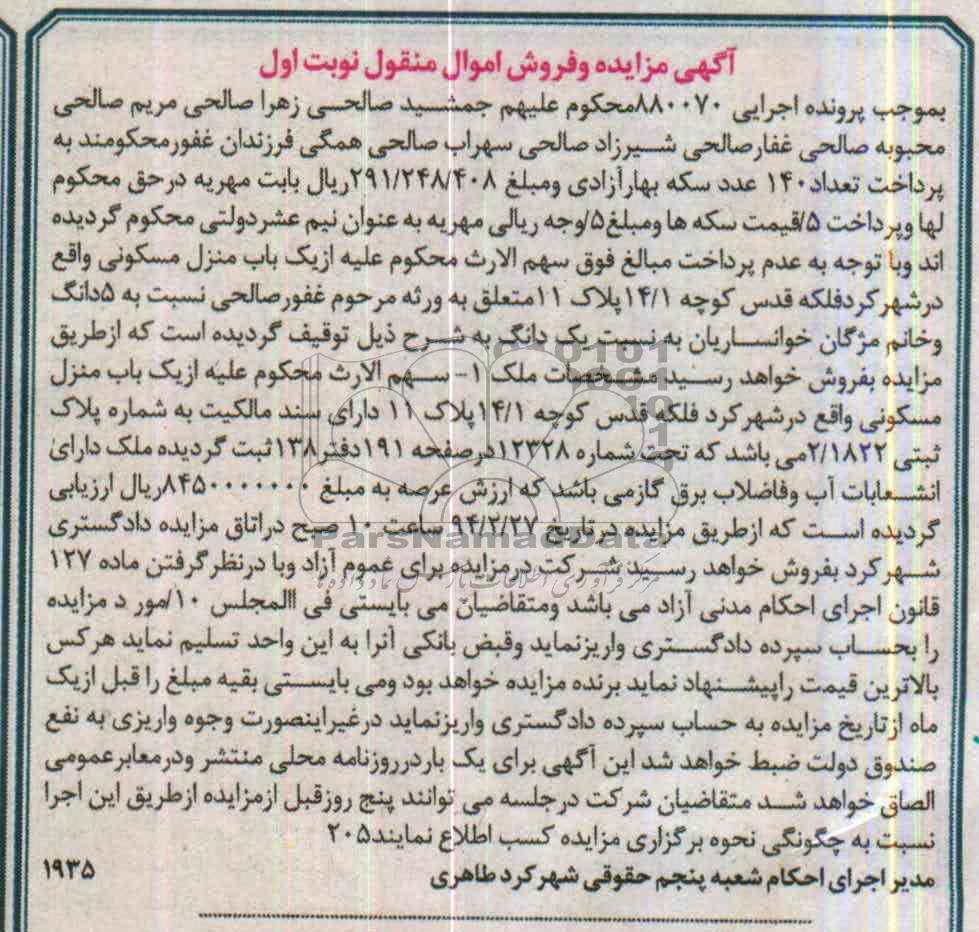 آگهی مزایده وفروش اموال منقول نوبت اول
بموجب پرونده اجرایی ۸۸۰۰۷۰محکوم علیهم جمشید صالحی زهرا صالحی مریم صالحی
محبوبه صالحی غفارصالحی شیرزاد صالحی سهراب صالحی همگی فرزندان غفورمحکومند به
پرداخت تعداد۱۴۰ عدد سکه بهارآزادی ومبلغ ۲۹۱/۲۴۸/۴۰۸ریال بابت مهریه درحق محکوم
لها وپرداخت ۵/قیمت سکه ها ومبلغ۵/وجه ریالی مهریه به عنوان نیم عشردولتی محکوم گردیده
اند وبا توجه به عدم پرداخت مبالغ فوق سهم الارث محکوم علیه ازیک باب منزل مسکونی واقع
درشهرکردفلکه قدس کوچه ۱۴/۱پلاک ۱۱متعلق به ورثه مرحوم غفورصالحی نسبت به ۵دانگ
وخانم مژگان خوانساریان به نسبت یک دانگ به شرح ذیل توقیف گردیده است که ازطریق
مزایده بفروش خواهد رسید مشخصات ملک ۱- سهم الارث محکوم علیه ازیک باب منزل
مسکونی واقع درشهرکرد فلکه قدس کوچه ۱۴/۱پلاک ۱۱ دارای سند مالکیت به شماره پلاک
ثبتی ۲/۱۸۲۲می باشد که تحت شماره ۱۲۳۲۸درصفحه ۱۹۱دفتر۱۳۸ثبت گردیده ملک دارای
انشعابات آب وفاضلاب برق گازمی باشد که ارزش عرصه به مبلغ ۸۴۵۰۰۰۰۰۰۰ریال ارزیابی
گردیده است که ازطریق مزایده درتاریخ ۹۴/۲/۲۷ ساعت ۱۰ صبح دراتاق مزایده دادگستری
شهرکرد بفروش خواهد رسید شرکت درمزایده برای عموم آزاد وبا درنظرگرفتن ماده ۱۲۷
قانون اجرای احکام مدنی آزاد می باشد ومتقاضیان می بایستی فی االمجلس ۱۰/مور د مزایده
را بحساب سپرده دادگستری واریزنماید وقبض بانکی آنرا به این واحد تسلیم نماید هرکس
بالاترین قیمت راپیشنهاد نماید برنده مزایده خواهد بود ومی بایستی بقیه مبلغ را قبل ازیک
ماه ازتاریخ مزایده به حساب سپرده دادگستری واریزنماید درغیراینصورت وجوه واریزی به نفع
صندوق دولت ضبط خواهد شد این آگهی برای یک باردرروزنامه محلی منتشر ودرمعابرعمومی
الصاق خواهد شد متقاضیان شرکت درجلسه می توانند پنج روزقبل ازمزایده ازطریق این اجرا
نسبت به چگونگی نحوه برگزاری مزایده کسب اطلاع نمایند۲۰۵
مدیر اجرای احکام شعبه پنجم حقوقی شهرکرد طاهری ۱۹۳۵
ParsNamadData